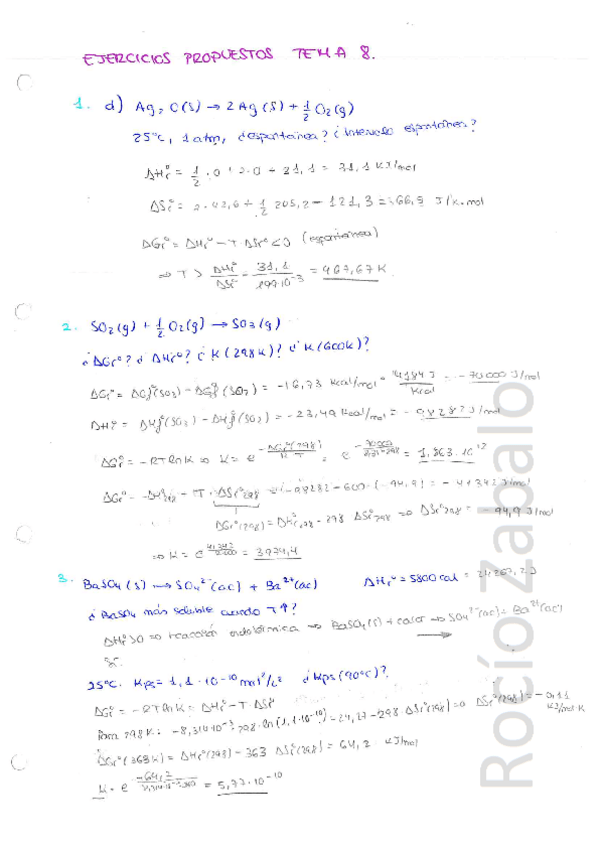 EJERCICIOS PROPUESTOS TEMA 8.
1. d) Ag₂O(s) → 2Ag(s) + 1/2 O₂(g)
25°C, 1 atm, ¿espontánea? ¿intervalo espontánea?
ΔHr° = 1/2 · 0 + 2·0 + 31,1 = 31,1 KJ/mol
ΔSr° = 2·42,6 + 1/2 205,2 - 121,3 = 66,5 J/K·mol
ΔGr° = ΔHr° - T ΔSr° < 0 (espontánea)
⇒ T > ΔHr°/ΔSr° = 31,1/ = 467,67 K.
2. SO₂(g) + 1/2 O₂(g) → SO₃(g)
¿ΔGr°? ¿ΔHr°? ¿K(298K)? ¿K(600K)?
ΔGr° = ΔGf°(SO₃) - ΔGf°(SO₂) = -16,73 Kcal/mol = 4184 J/Kcal = -70000 J/mol
ΔHr° = ΔHf°(SO₃) - ΔHf°(SO₂) = -23,49 Kcal/mol = -98282 J/mol
ΔGr° = -RT ln K ⇒ K = e = 1,863·10¹²
ΔGr° = T · ΔSr°298 = -98282 - 600·(-94,9) = -41342 J/mol
ΔGr°(298) = ΔHr°298 - 298 ΔSr°298 ⇒ ΔSr°298 = -94,9 J/mol
⇒ K = e = 3974,4
3. BaSO₄(s) → SO₄²⁻(ac) + Ba²⁺(ac) ΔHr° = 5800 cal = 24267,2 J
¿BaSO₄ más soluble cuando T↑?
ΔHr° > 0 ⇒ reacción endotérmica ⇒ BaSO₄(s) + calor → SO₄²⁻(ac) + Ba²⁺(ac)
Sí.
25°C. Kps = 1,1·10⁻¹⁰ mol²/L² ¿Kps(90°C)?
ΔGr° = -RT ln K = ΔHr° - T·ΔSr°
Para 298K: -8,314·10⁻³·298·ln(1,1·10⁻¹⁰) = 24,27 - 298·ΔSr°(298) ⇒ ΔSr°(298) = -0,11 KJ/mol·K
ΔGr°(363K) = ΔHr°(298) - 363 ΔSr°(298) = 64,2 KJ/mol
K = e = 5,73·10⁻¹⁰
Rocío Zaballo